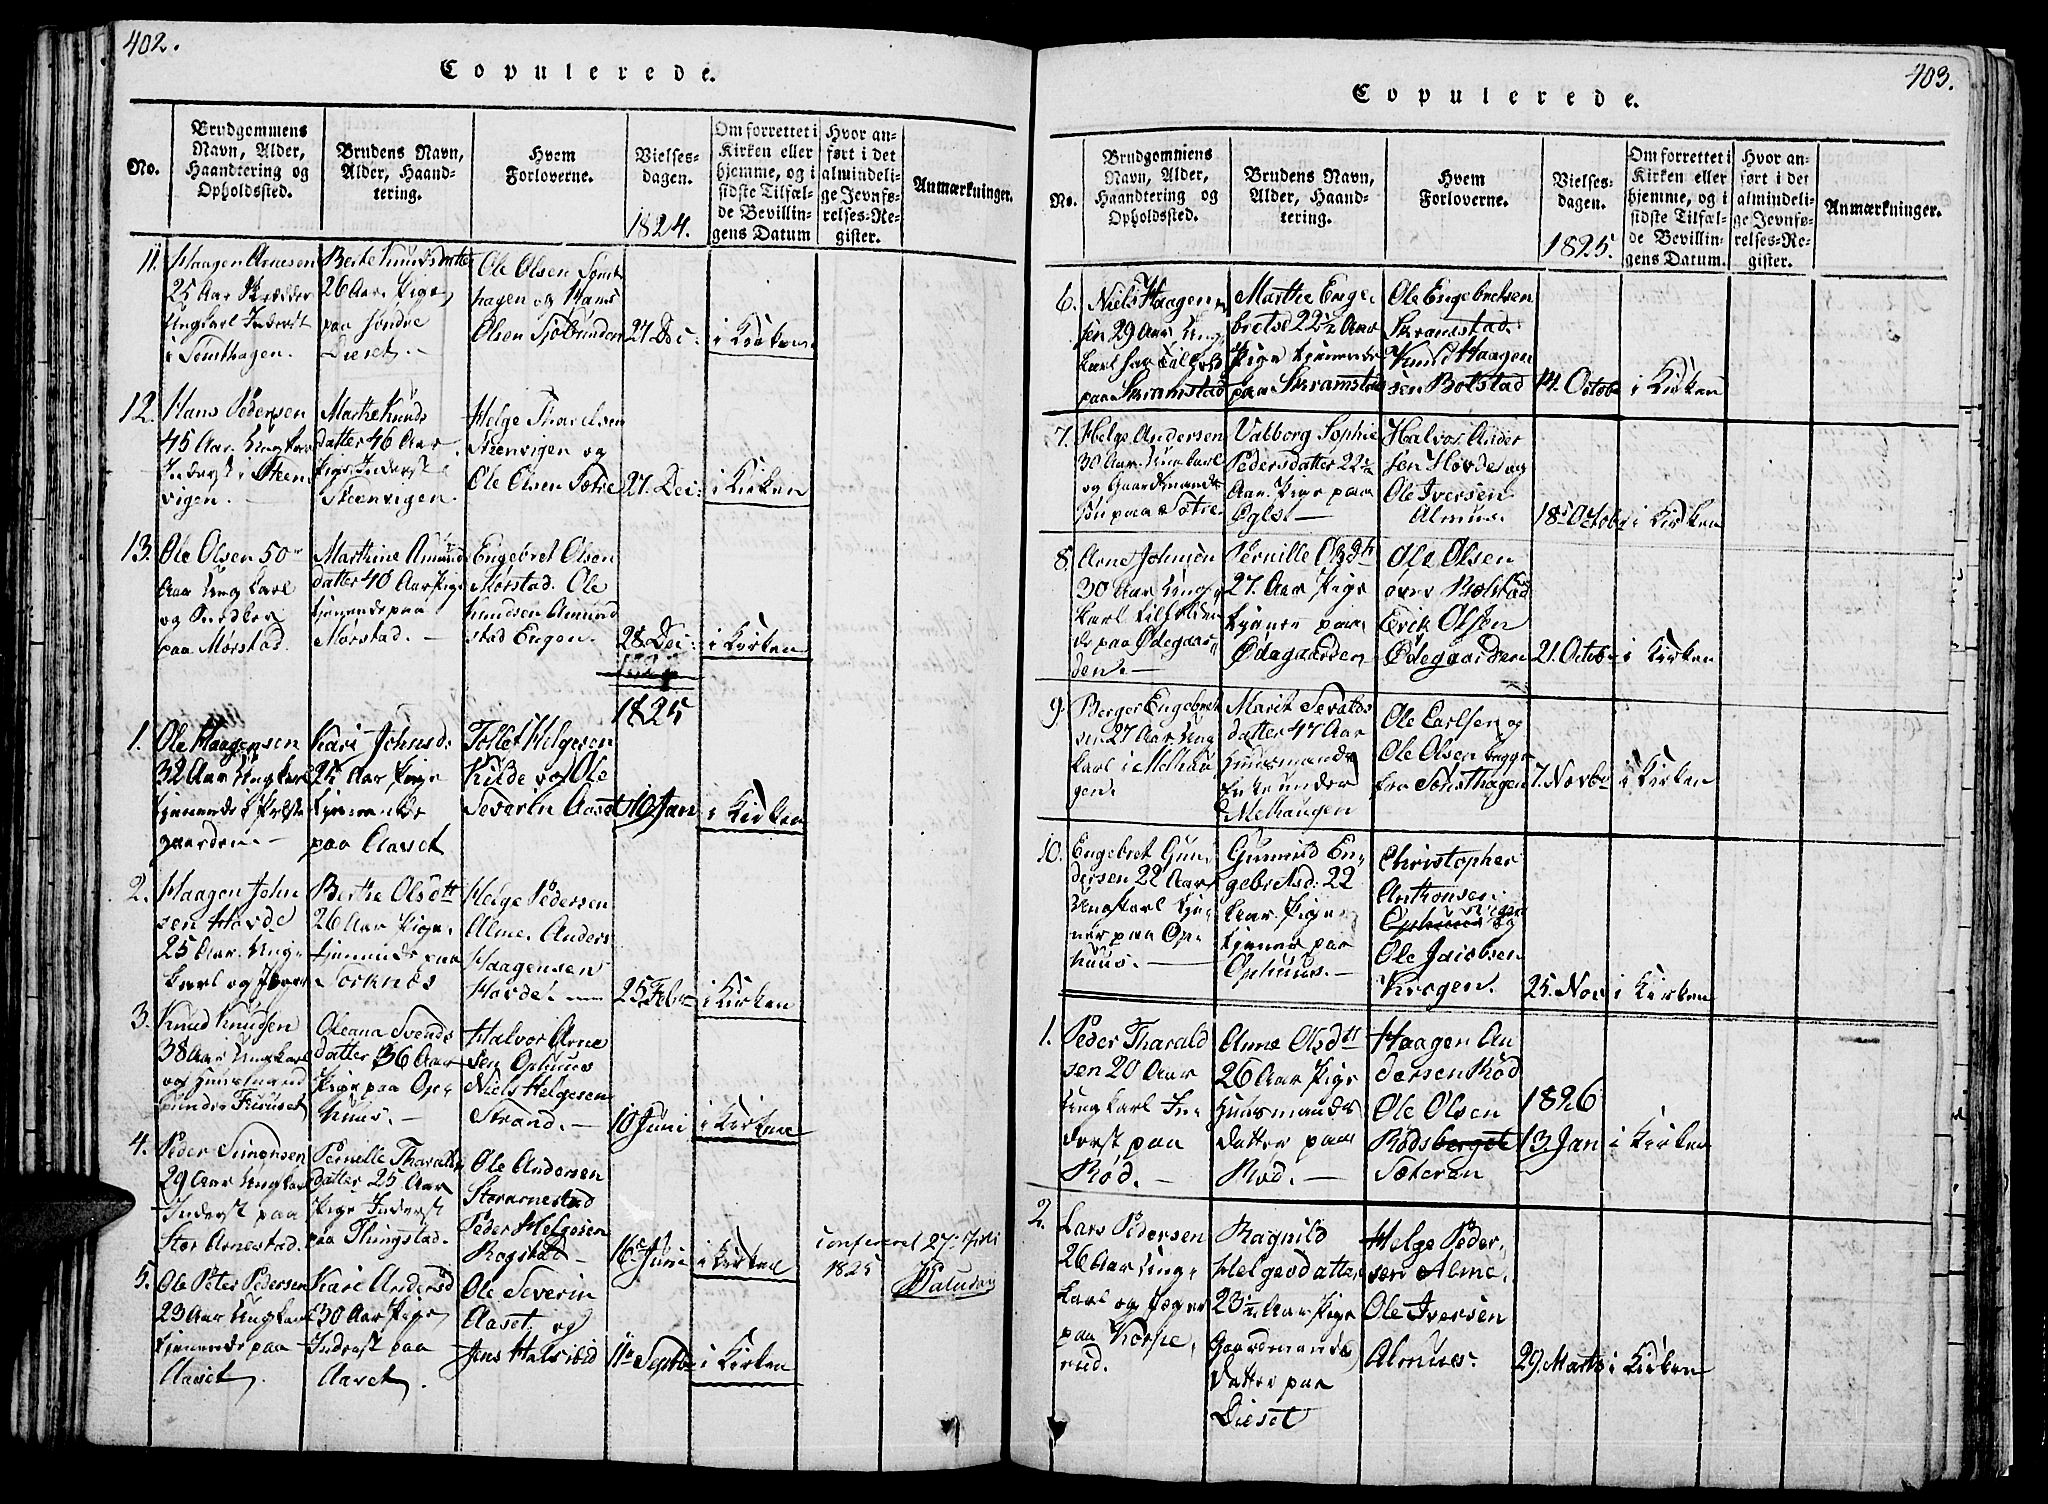 402.
Copulerede.
No.
Brudgommens
Navn, Alder,
Haandtering og
Opholdssted.
Brudens Navn,
Alder, Haand-
tering.
Hvem
Forloverne.
Vielses-
dagen.
1824.
Om forrettet i
Kirken eller
hjemme, og i
sidste Tilfæl-
de Bevillin-
gens Datum
Hvor an-
ført i det
almindeli-
ge Jevnfø-
relses-Re-
gister.
Anmærkninger.
11.
Haagen Arnesen
25 Aar Skrædder
Ungkarl Inderst
i Tomthagen.
Berthe Knudsdatter
26 Aar Pige
paa søndre
Dieset.
Ole Olsen Tomt
hagen og
Olsen
27 Dec:
i Kirken
12.
Hans Pedersen
45 Aar Ungkarl
Inderst i Steen
vigen.
Marthe Knuds
datter 46 Aar
Pige Inderst i
Steenvigen.
Helge Tharelsen
Steenvigen og
Ole Olsen Sætre
27. Dec:
i Kirken
13.
Ole Olsen 50
Aar Ung karl
og
paa Mørstad.
Marthine Amund
datter 40 Aar Pige
tjenende paa
Mørstad.
Engebret Olsen
Mørstad. Ole
Knudsen Amund
stad Engen.
28 Dec:
i Kirken
1825
1.
Ole Haagensen
32 Aar Ungkarl
tjenende i Præste
gaarden.
Kari Johnsd:
25 Aar Pige
tjenende
paa Aaset
Tollef Helgesen
Kilde og Ole
Severin Aaset
10 Jan
i Kirken
2.
Haagen John
sen Hovde
25 Aar Ung-
karl og
Berthe Olsdtt
26 Aar Pige
tjenende paa
Torknes
Helge Pedersen
Alme. Anders
Haagensen
Hovde.
25 Febr
i Kirken
3.
Knud Knudsen
38 Aar Ungkarl
og Huusmand
under Furuset
Oleana Svends
datter 36 Aar
Pige paa Op-
huus.
Halvor Arne
sen Ophuus
Niels Helgesen
Strand.
10 Juni
i Kirken
4.
Peder Simonsen
29 Aar Ungkarl
Inderst paa
Stor Arnestad.
Pernille Tharalds
datter 25 Aar
Pige Inderst
paa Thingstad.
Ole Andersen
Storarnestad
Peder Helgesen
Rogstad
16 Juni
i Kirken
confereret 27
1825
5.
Ole Peter Pedersen
23 Aar Ungkarl
tjenende paa
Aaset.
Kari Andersd
30 Aar Pige
Inderst paa
Aaset.
Ole Severin
Aaset og
Jens Halvibid
11te Septbr
i Kirken
403.
Copulerede.
No.
Brudgommens
Navn, Alder,
Haandtering og
Opholdssted.
Brudens Navn,
Alder, Haand-
tering.
Hvem
Forloverne.
Vielses-
dagen.
1825.
Om forrettet i
Kirken eller
hjemme, og i
sidste Tilfæl-
de Bevillin-
gens Datum.
Hvor an-
ført i det
almindeli-
ge Jevnfø-
relses-Re-
gister.
Anmærkninger.
6.
Niels Haagen
sen 29 Aar Ung
karl har Tilhold
paa Skramstad
Marthe Enge
bretsd 22½ Aar
Pige tjenende
paa Skramstad
Ole Engebretsen
Skramstad.
Knud Haagen
sen Bolstad
14. Octobr
i Kirken
7.
Helge Andersen
30 Aar Ungkarl
og Gaardmands
søn paa Sætre.
Valborg Sophie
Pedersdatter 22½
Aar. Pige paa
Øglse
Halvor Ander
sen Hovde og
Ole Iversen
Almus.
18 Octobr
i Kirken
8.
Arne Johnsen
30 Aar Ung
karl tilholden
de paa Ødegaar
den.
Pernille Olsdtr
27. Aar Pige
tjener paa
Ødegaarden
Ole Olsen
øvre Bolstad
Erik Olsen
Ødegaarden
21. Octobr
i Kirken
9.
Berger Engebret
sen 27 Aar Ung
karl i Melhau
gen.
Marit
datter 47 Aar
Huusmands
Enke under
Melhaugen
Ole Carlsen og
Ole Olsen begge
fra Tomthagen
7. Novbr
i Kirken
10.
Engebret Gun
dersen 22 Aar
Ungkarl tje-
ner paa Op-
huus.
Gunnild En
gebretsd: 22
Aar. Pige
tjener paa
Ophuus.
Christopher
Anthonsen
Ophuus og
Ole Jacobsen
Krogen.
25. Nov
i Kirken
1.
Peder Tharald
sen 20 Aar
Ungkarl In-
derst paa
Rød.
Anne Olsdtt
26 Aar Pige
Huusmands
datter paa
Rød.
Haagen An
dersen Rød
Ole Olsen
Rødsberget
Sæteren
1826
13. Jan
i Kirken
2.
Lars Pedersen
26 Aar Ung-
karl og Jæger
paa Korpe
rud.
Ragnild
Helgesdatter
23½ Aar Pige
Gaardmands
datter paa
Dieset
Helge Peder-
sen Alme.
Ole Iversen
Almus.
29. Marts
i Kirken